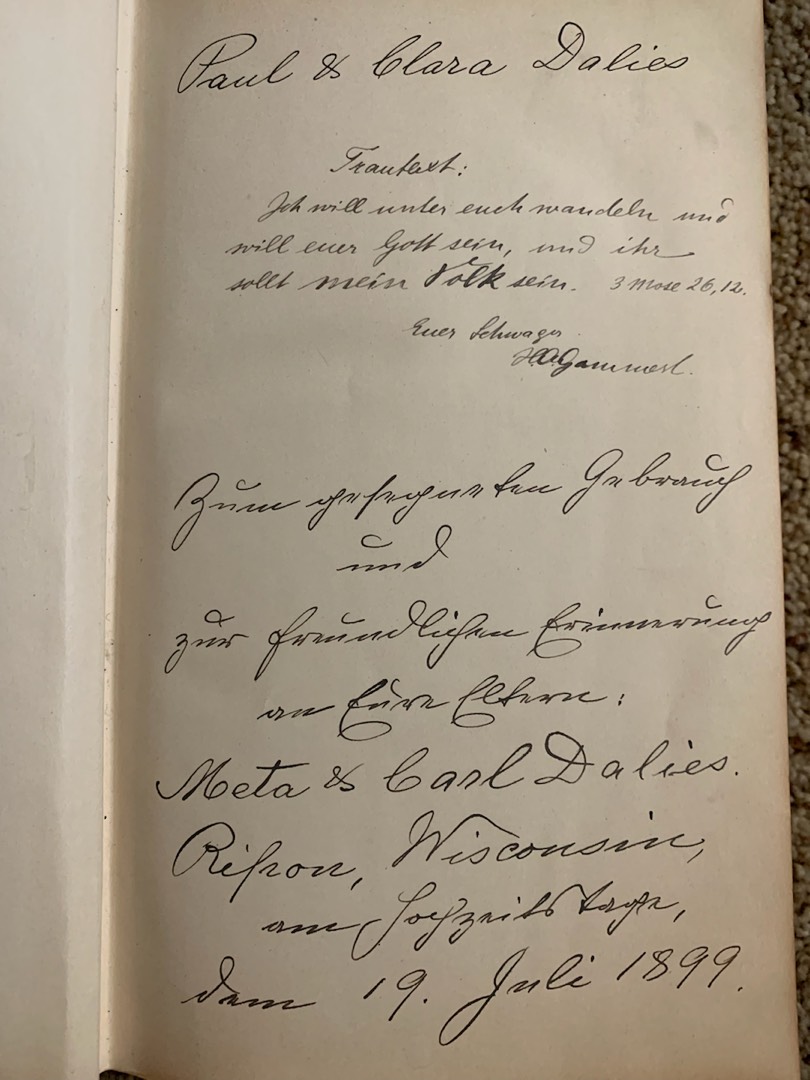 Paul & Clara Dalies
Trautext:
Ich will unter euch wandeln und
will euer Gott sein, und ihr
sollt mein Volk sein. 3 Mose 26,12.
Euer Schwager
Zum gesegneten Gebrauch
und
zur freundlichen Erinnerung
an Eure Eltern:
Meta & Carl Dalies.
Ripon, Wisconsin,
am Hochzeitstage,
dem 19. Juli 1899.